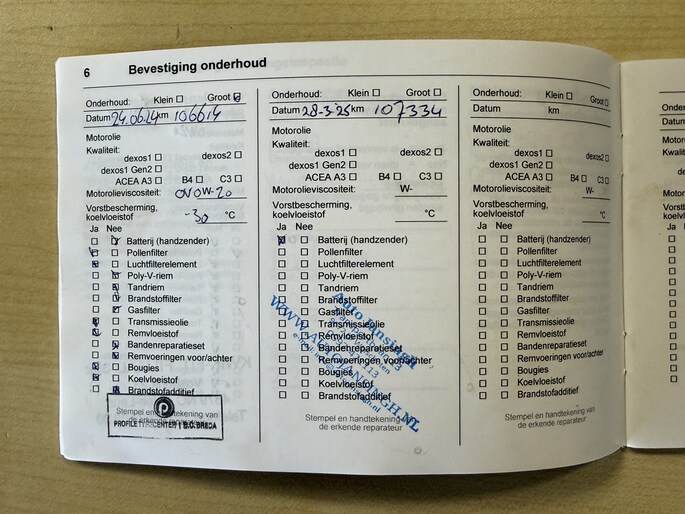 6 Bevestiging onderhoud
Onderhoud: Klein Groot
Datum 24.06.24 km 106614
Motorolie
Kwaliteit:
dexos1 dexos2
dexos1 Gen2
ACEA A3 B4 C3
Motorolieviscositeit: OW-20
Vorstbescherming,
koelvloeistof -30 °C
Ja Nee
Batterij (handzender)
Pollenfilter
Luchtfilterelement
Poly-V-riem
Tandriem
Brandstoffilter
Gasfilter
Transmissieolie
Remvloeistof
Bandenreparatieset
Remvoeringen voor/achter
Bougies
Koelvloeistof
Brandstofadditief
Stempel en handtekening van
de erkende reparateur
PROFILE TYRECENTER BREDA
Onderhoud: Klein Groot
Datum 28-3-25 km 107334
Motorolie
Kwaliteit:
dexos1 dexos2
dexos1 Gen2
ACEA A3 B4 C3
Motorolieviscositeit: W-
Vorstbescherming,
koelvloeistof °C
Ja Nee
Batterij (handzender)
Pollenfilter
Luchtfilterelement
Poly-V-riem
Tandriem
Brandstoffilter
Gasfilter
Transmissieolie
Remvloeistof
Bandenreparatieset
Remvoeringen voor/achter
Bougies
Koelvloeistof
Brandstofadditief
Auto Jansingh
WWW.AUTOJANSINGH.NL
Stempel en handtekening van
de erkende reparateur
Onderhoud: Klein Groot
Datum km
Motorolie
Kwaliteit:
dexos1 dexos2
dexos1 Gen2
ACEA A3 B4 C3
Motorolieviscositeit: W-
Vorstbescherming,
koelvloeistof °C
Ja Nee
Batterij (handzender)
Pollenfilter
Luchtfilterelement
Poly-V-riem
Tandriem
Brandstoffilter
Gasfilter
Transmissieolie
Remvloeistof
Bandenreparatieset
Remvoeringen voor/achter
Bougies
Koelvloeistof
Brandstofadditief
Stempel en handtekening van
de erkende reparateur